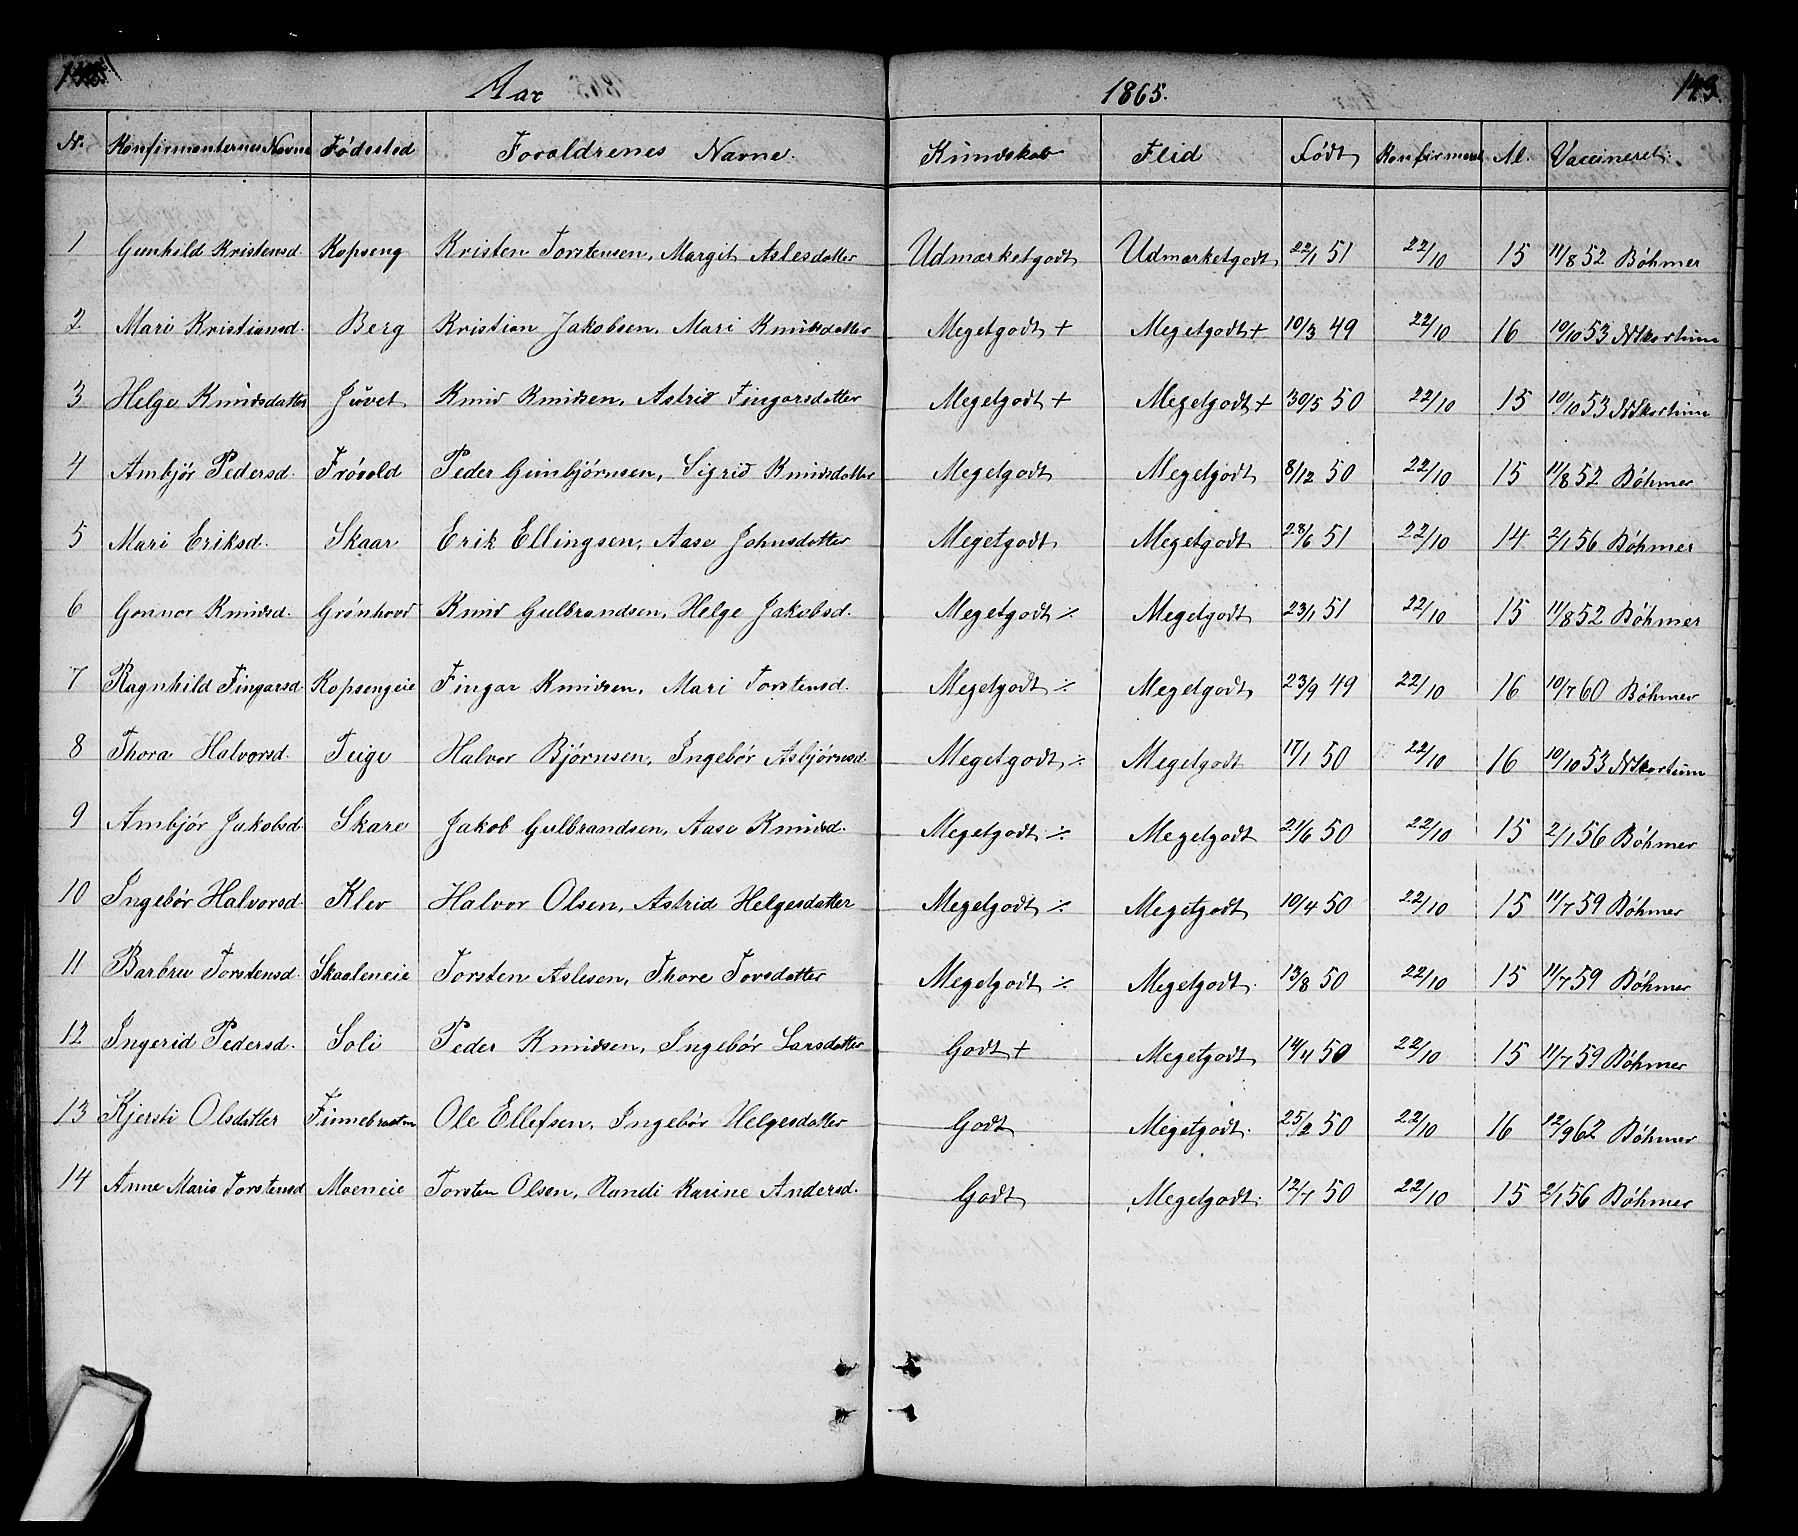 Aar 1865. 143.
N. Konfirmanternes Navne Fødested Foraldrenes Navne. Kundskab Flid Født Konfirmeret Al. Vaccineret.
1 Gunhild Kristensd. Kopseng Kristen Torstensen, Margit Aslesdatter Udmærketgodt Udmærketgodt 22/1 51 22/10 15 11/8 52 Bøhmer
2 Mari Kristiansd. Berg Kristian Jakobsen, Mari Knutsdatter Megetgodt + Megetgodt + 10/3 49 22/10 16 10/10 53 NSkortum
3 Helge Knudsdatter Juvet Knud Knudsen, Astrid Fingarsdatter Megetgodt + Megetgodt + 30/5 50 22/10 15 10/10 53 NSkortum
4 Ambjør Pedersd. Frövold Peder Gunbjørnsen, Sigrid Knudsdatter Megetgodt Megetgodt 8/12 50 22/10 15 11/8 52 Bøhmer
5 Mari Eriksd. Skaar Erik Ellingsen, Aase Johnsdatter Megetgodt Megetgodt 28/6 51 22/10 14 2/1 56 Bøhmer
6 Gonnor Knudsd. Grønhovd Knud Gulbrandsen, Helge Jakobsd. Megetgodt ÷ Megetgodt 23/1 51 22/10 15 11/8 52 Bøhmer
7 Ragnhild Fingarsd. Kopsengeie Fingar Knudsen, Mari Torstensd. Megetgodt ÷ Megetgodt 23/9 49 22/10 16 10/7 60 Bøhmer
8 Thora Halvorsd. Teige Halvor Bjørnsen, Ingebør Asbjørnsd. Megetgodt ÷ Megetgodt 17/1 50 22/10 16 10/10 53 NSkortum
9 Ambjør Jakobsd. Skare Jakob Gulbrandsen, Aase Knudsd. Megetgodt ÷ Megetgodt 21/6 50 22/10 15 2/1 56 Bøhmer
10 Ingebør Halvorsd. Klev Halvor Olsen, Astrid Helgesdatter Megetgodt ÷ Megetgodt 10/4 50 22/10 15 11/7 59 Bøhmer
11 Barbru Torstensd. Skaaleneie Torsten Aslesen, Thore Torsdatter Megetgodt ÷ Megetgodt. 13/8 50 22/10 15 11/7 59 Bøhmer
12 Ingerid Pedersd. Soli Peder Knudsen, Ingebør Larsdatter Godt + Megetgodt 14/4 50 22/10 15 11/7 59 Bøhmer
13 Kjersti Olsdatter Finnebraaten Ole Ellefsen, Ingebør Helgesdatter Godt Megetgodt. 25/2 50 22/10 16 12/9 62 Bøhmer
14 Anne Maria Torstensd Moeneie Torsten Olsen, Randi Karine Andersd. Godt Megetgodt. 12/7 50 22/10 15 2/1 56 Bøhmer